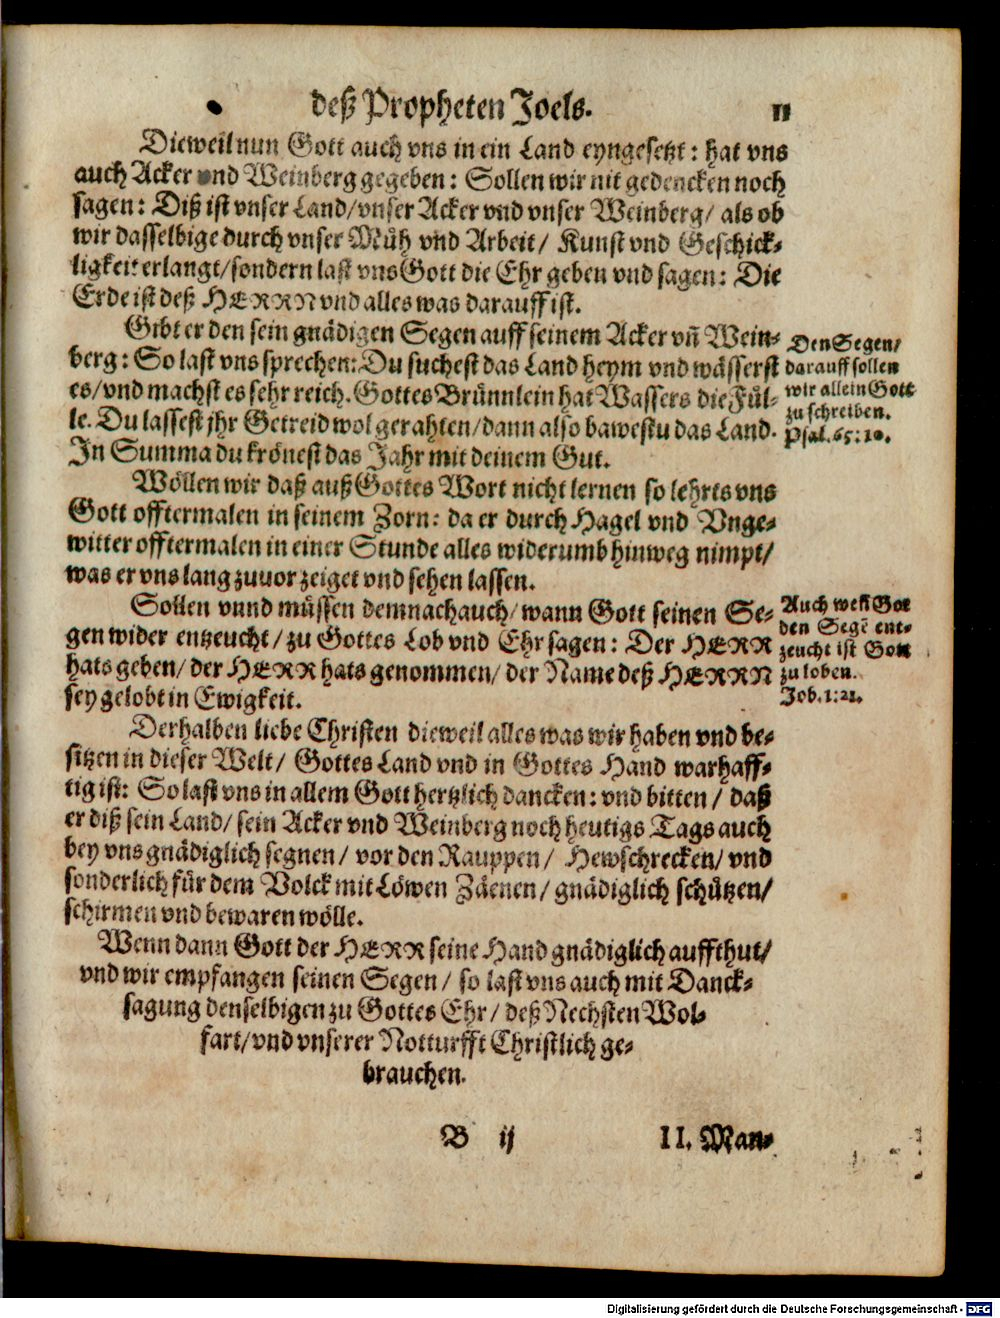 deß Propheten Joels. 11
Dieweil nun Gott auch vns in ein Land eyngesetzt: hat vns
auch Acker vnd Weinberg gegeben: Sollen wir nit gedencken noch
sagen: Diß ist vnser Land/ vnser Acker vnd vnser Weinberg/ als ob
wir dasselbige durch vnser Müh vnd Arbeit/ Kunst vnd Geschick-
ligkeit erlangt/ sondern last vns Gott die Ehr geben vnd sagen: Die
Erde ist deß HERRN vnd alles was darauff ist.
Gibt er den sein gnädigen Segen auff seinem Acker vñ Wein-
berg: So last vns sprechen: Du suchest das Land heym vnd wässerst
es/ vnd machst es sehr reich. Gottes Brünnlein hat Wassers die Fül-
le. Du lassest jhr Getreid wol gerahten/ dann also bawestu das Land.
In Summa du krönest das Jahr mit deinem Gut.
Den Segen/
darauff sollen
wir allein Gott
zu schreiben.
Psal. 65: 10.
Wöllen wir daß auß Gottes Wort nicht lernen so lehrts vns
Gott offtermalen in seinem Zorn: da er durch Hagel vnd Vnge-
witter offtermalen in einer Stunde alles widerumb hinweg nimpt/
was er vns lang zuuor zeiget vnd sehen lassen.
Sollen vnnd müssen demnach auch/ wann Gott seinen Se-
gen wider entzeucht/ zu Gottes Lob vnd Ehr sagen: Der HERR
hats geben/ der HERR hats genommen/ der Name deß HERRN
sey gelobt in Ewigkeit.
Auch weñ Got
den Segẽ ent-
zeucht ist Gott
zu loben.
Job. 1: 21.
Derhalben liebe Christen dieweil alles was wir haben vnd be-
sitzen in dieser Welt/ Gottes Land vnd in Gottes Hand warhaff-
tig ist: So last vns in allem Gott hertzlich dancken: vnd bitten/ daß
er diß sein Land/ sein Acker vnd Weinberg noch heutigs Tags auch
bey vns gnädiglich segnen/ vor den Rauppen/ Hewschrecken/ vnd
sonderlich für dem Volck mit Löwen Zäenen/ gnädiglich schützen/
schirmen vnd bewaren wölle.
Wenn dann Gott der HERR seine Hand gnädiglich auffthut/
vnd wir empfangen seinen Segen/ so last vns auch mit Danck-
sagung denselbigen zu Gottes Ehr/ deß Nechsten Wol-
fart/ vnd vnserer Notturfft Christlich ge-
brauchen.
B ij II. Man-
Digitalisierung gefördert durch die Deutsche Forschungsgemeinschaft - DFG